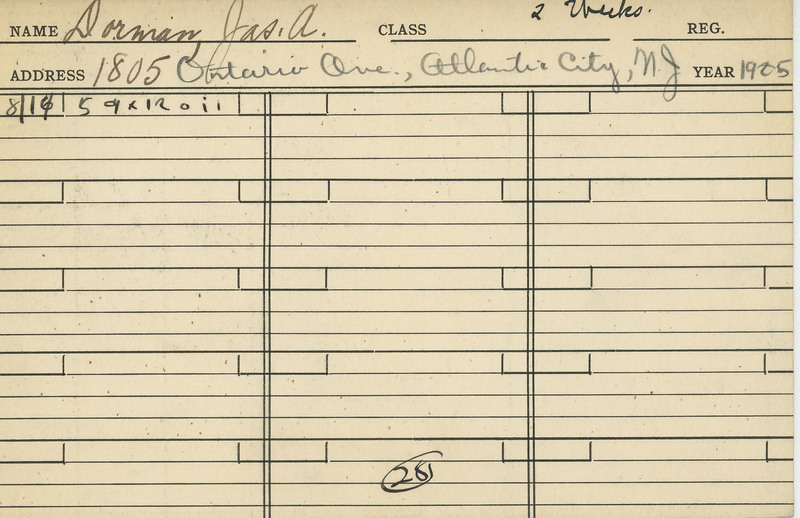 NAME Dorman, Jas. A. CLASS 2 Weeks. REG.
ADDRESS 1805 Ontario Ave., Atlantic City, N.J YEAR 1925
8/14 5 9x12 oil
28